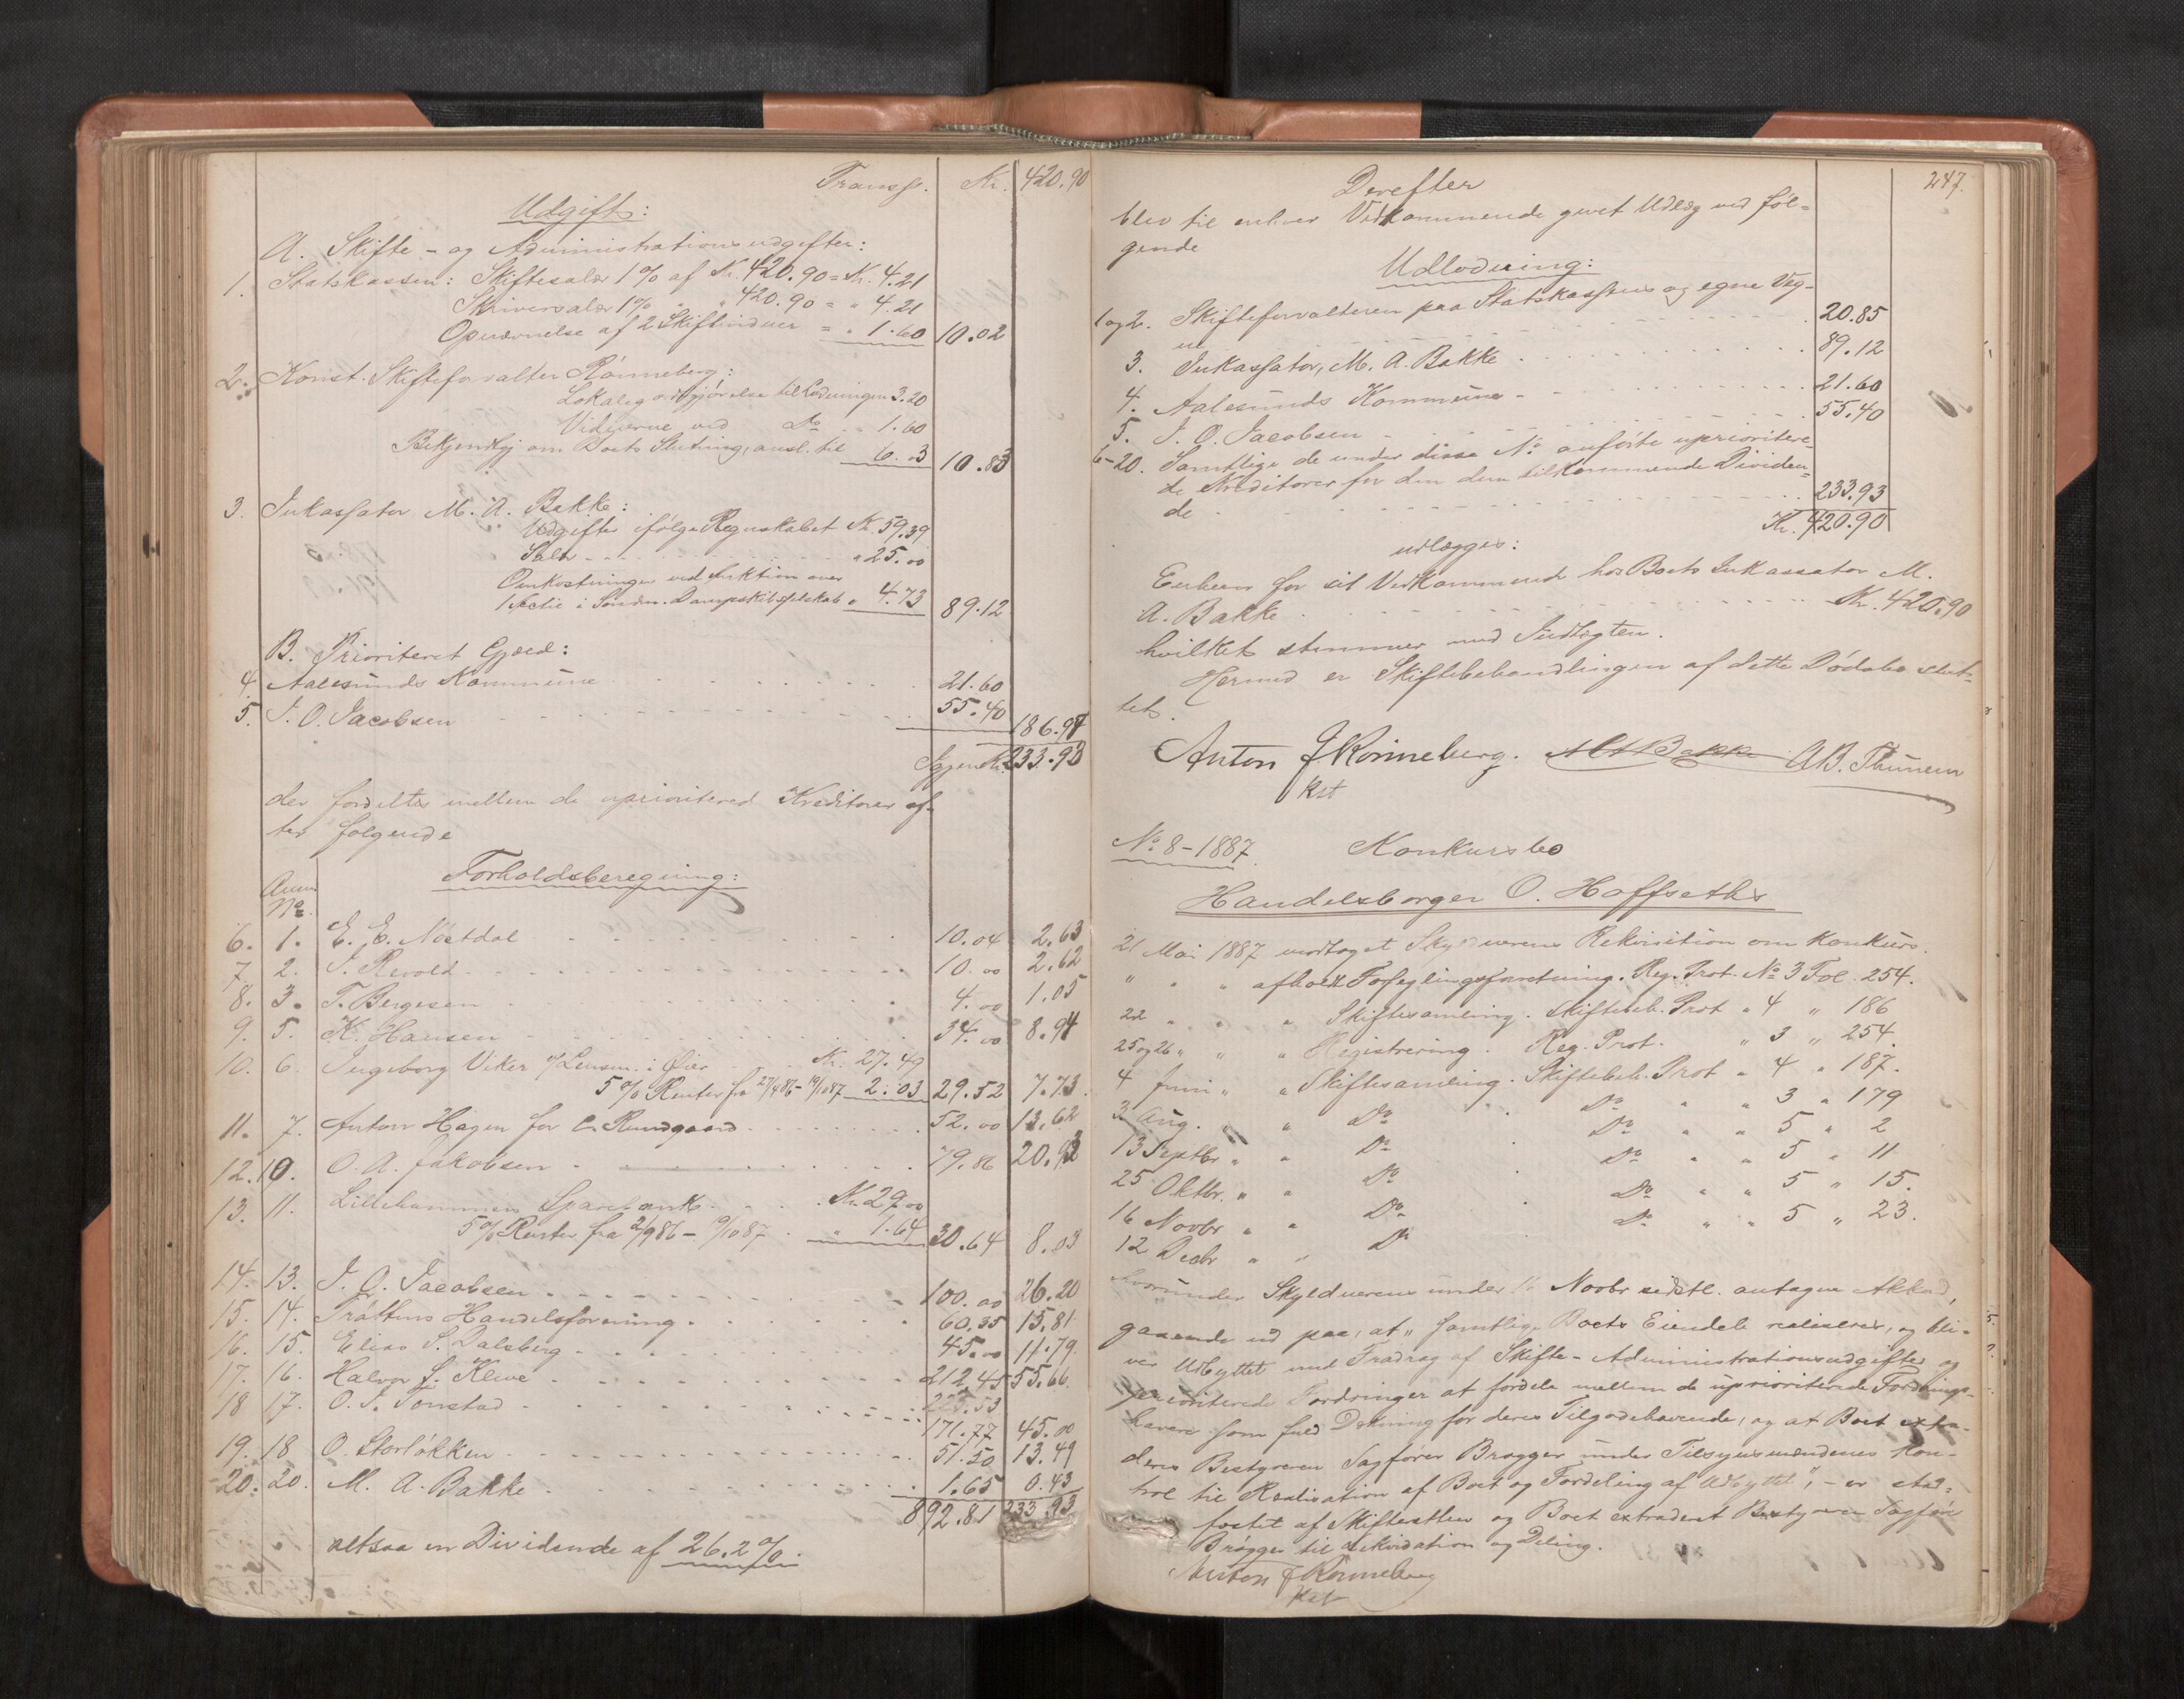 Transp. Kr. 420.90
Udgift:
A. Skifte- og Administrationsudgifter:
1. Statskassen: Skiftesalær 1% af Kr. 420.90 = Kr. 4.21
Skriversalær 1% " " 420.90 = " 4.21
Opnævnelse af 2 Skiftevidner = " 1.60 10.02
2. Konst. Skifteforvalter Rönneberg:
Lokalegodtgjörelse til Lodningen 3.20
Vidnerne ved Do " 1.60
Bekjendtgj om Boets Slutning, ansl. til 6.03 10.83
3. Inkassator M. A. Bakke:
Udgifter ifølge Regnskabet Kr. 59.39
Salær " 25.00
Omkostninger ved Auktion over
1 Actie i Söndm. Dampskibsselskab " 4.73 89.12
B. Prioriteret Gjæld:
4. Aalesunds Kommune 21.60
5. J. O. Jacobsen 55.40 186.97
Igjen Kr. 233.93
der fordeltes mellem de uprioriterede Kreditorer ef-
ter følgende
Forholdsberegning:
Anm
No
6. 1. E. E. Nöstdal 10.04 2.63
7. 2. J. Revold 10.00 2.62
8. 3. T. Bergesen 4.00 1.05
9. 5. K. Hansen 34.00 8.91
10. 6. Ingeborg Viker v/ Lensm. i Øier Kr. 27.49
5% Renter fra 27/4 86 - 19/10 87 2.03 29.52 7.73
11. 7. Anton Hagen for C. Rundgaard 52.00 13.62
12. 10. O. A. Jakobsen 79.86 20.93
13. 11. Lillehammer Sparebank Kr. 29.00
5% Renter fra 2/9 86 - 19/10 87 " 1.64 30.64 8.03
14. 13. J. O. Jacobsen 100.00 26.20
15. 14. Tröttens Handelsforening 60.35 15.81
16. 15. Elias S. Dalsberg 45.00 11.79
17. 16. Halvor L. Kleve 212.45 55.66
18 17. O. J. Tonstad
171.77 45.00
19. 18 O. Storløkken 51.50 13.49
20. 20. M. A. Bakke 1.65 0.43
892.81 233.93
altsaa en Dividende af 26.2%.
247.
Derefter
blev til enhver Vedkommende givet Udlæg ved føl-
gende
Udlodning:
1 og 2. Skifteforvalteren paa Statskassens og egne Veg-
ne 20.85
3. Inkassator, M. A. Bakke 89.12
4. Aalesunds Kommune 21.60
5. J. O. Jacobsen 55.40
6-20. Samtlige de under disse No anförte uprioritere-
de Kreditorer for den dem tilkommende Dividen-
de 233.93
Kr. 420.90
udlægges:
Enhver for sit Vedkommende hos Boets Inkassator M.
A. Bakke Kr. 420.90
hvilket stemmer med Indtægten.
Hermed er Skiftebehandlingen af dette Dödsbo slut-
tet.
Anton J Rönneberg. M A Bakke A B. Thunem
kst
No 8-1887. Konkursbo
Handelsborger O. Hoffseths
21 Mai 1887 modtaget Skyldnerens Rekvisition om Konkurs.
" " " afholdt Forseglingsforretning. Reg. Prot. No 3 Fol. 254.
22 " " " Skiftesamling. Skiftebeh. Prot " 4 " 186
25 og 26 " " " Registrering. Reg. Prot. " 3 " 254.
4 Juni " " Skiftesamling. Skiftebeh. Prot " 4 " 187.
3 Aug. " " Do Do " " 3 " 179
13 Septbr " " Do Do " " 5 " 2
25 Oktbr. " " Do Do " " 5 " 11
16 Novbr " " Do Do " " 5 " 15.
12 Decbr " " Do Do " " 5 " 23.
hvorunder Skyldnerens under 16 Novbr sidstl. antagne Akkord,
gaaende ud paa, at "samtlige Boets Eiendele realiseres, og bli-
ver Udbyttet med Fradrag af Skifte- Administrationsudgifter og
prioriterede Fordringer at fordele mellem de uprioriterede Fordrings-
havere som fuld Dækning for deres Tilgodehavende, og at Boet extra-
deres Bestyreren Sagfører Brøgger under Tilsynsmændenes Kon-
trol til Realisation af Boet og Fordeling af Udbyttet", - er stad-
fæstet af Skifteretten og Boet extraderet Bestyreren Sagfører
Brøgger til Likvidation og Deling.
Anton J Rönneberg
kst